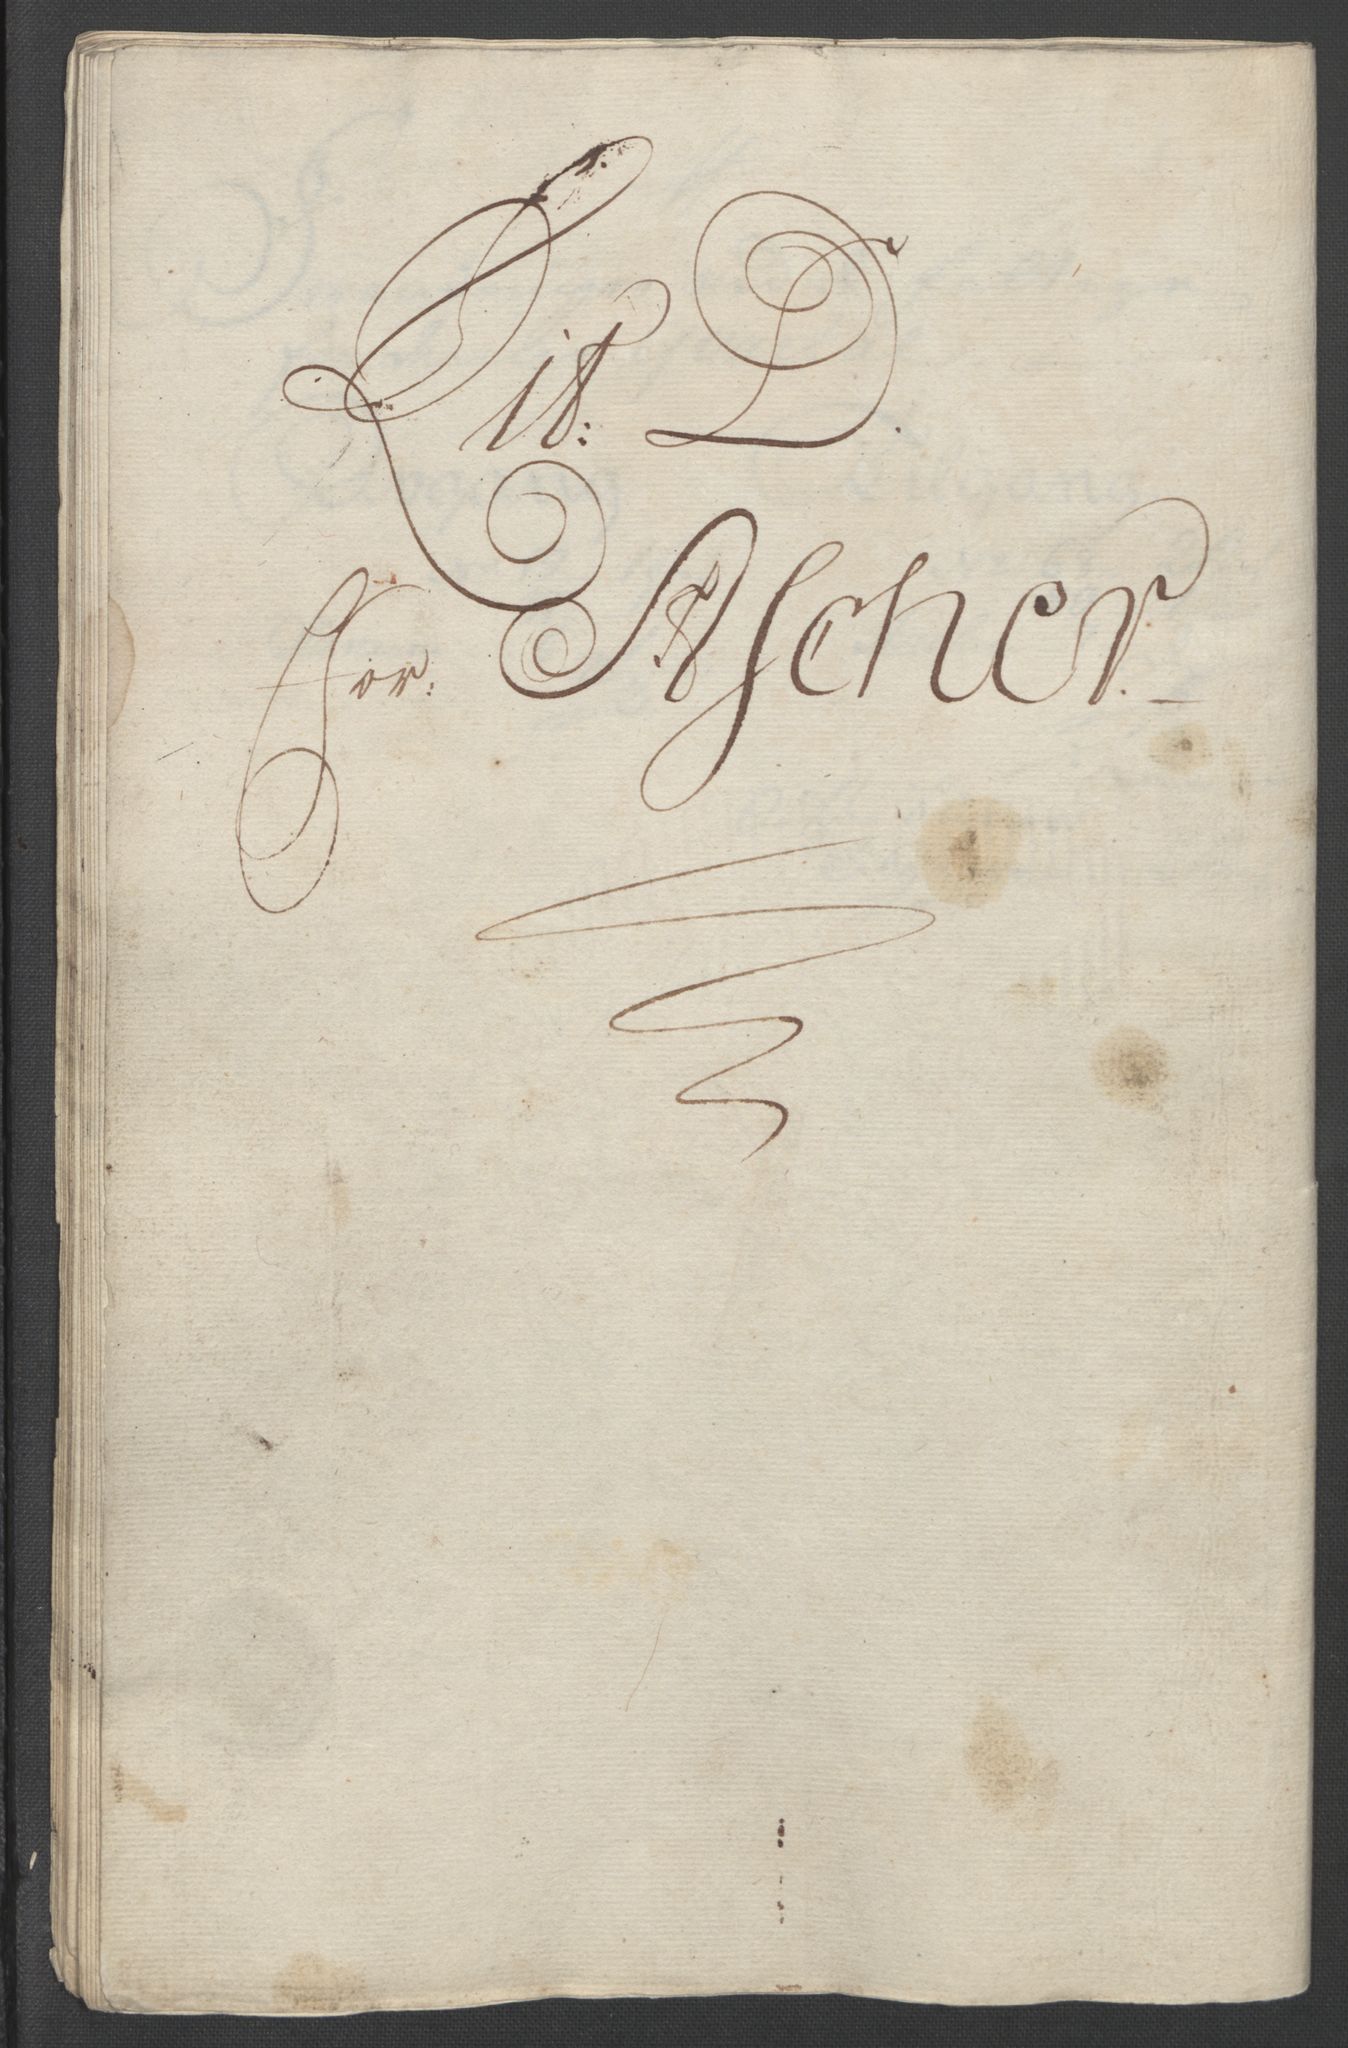 Lit: D.
for: Ascher